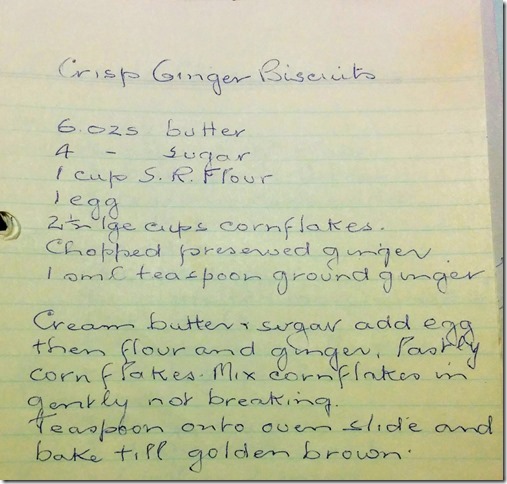 Crisp Ginger Biscuits
6.ozs butter
4 - sugar
1 cup S.R. Flour
1 egg
2½ lge cups cornflakes.
Chopped preserved ginger
1 sml teaspoon ground ginger
Cream butter & sugar add egg
then flour and ginger, lastly
cornflakes. Mix cornflakes in
gently not breaking.
Teaspoon onto oven slide and
bake till golden brown.